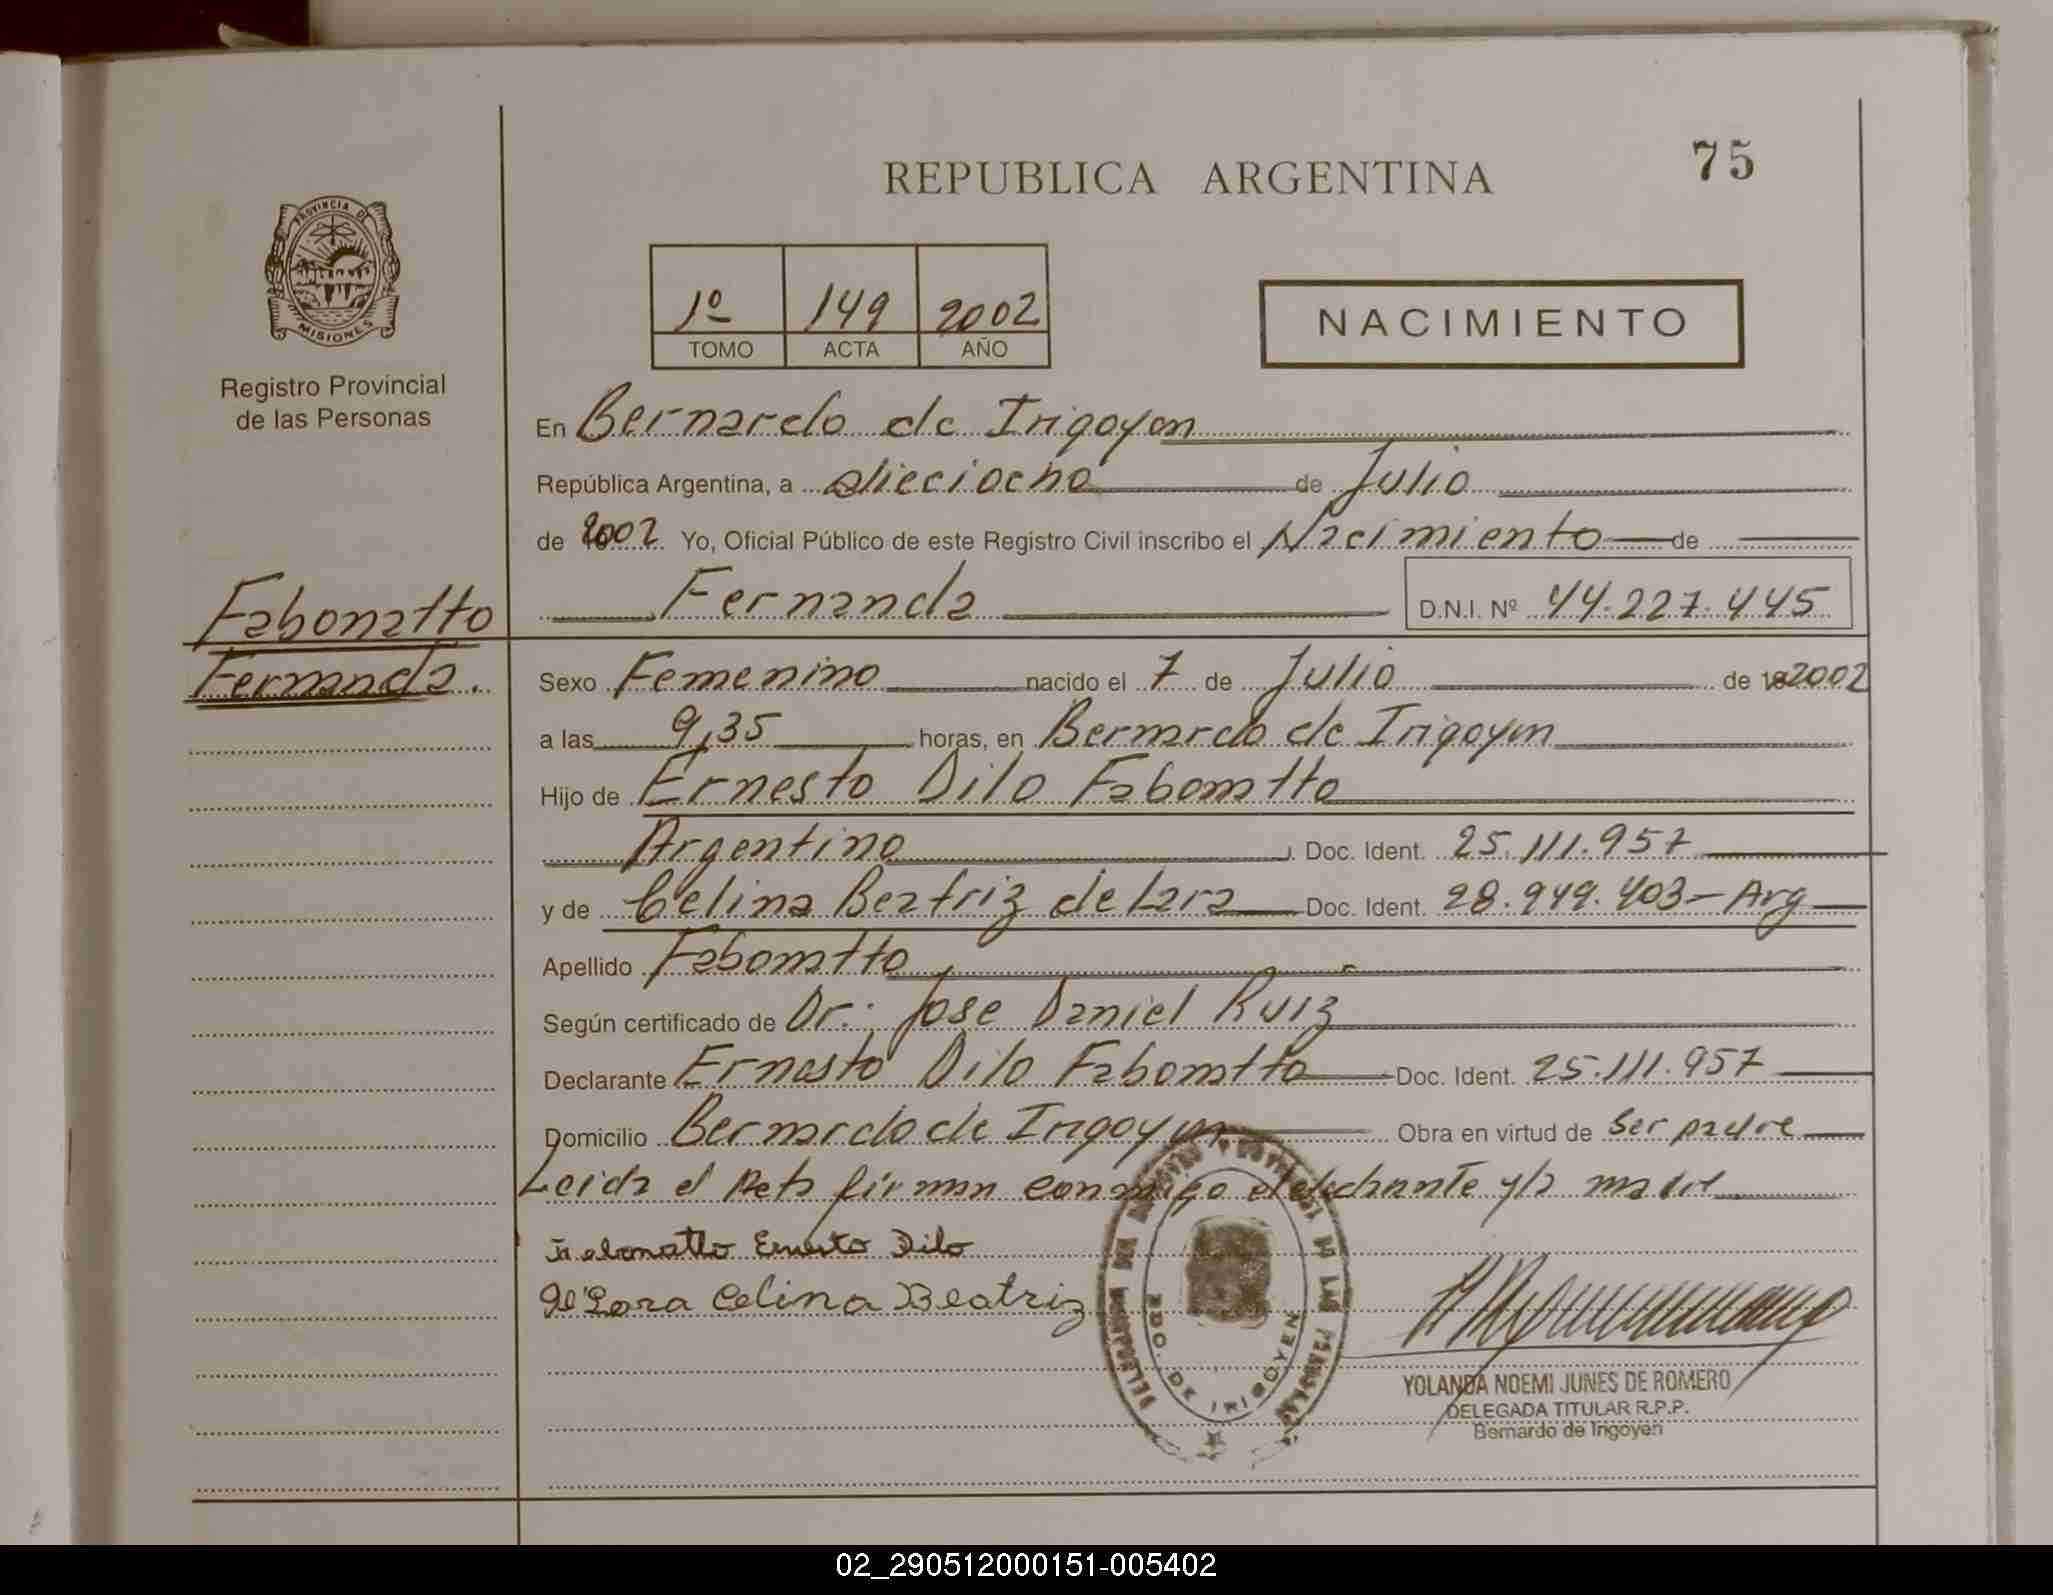 75
REPUBLICA ARGENTINA
PROVINCIA DE
MISIONES
Registro Provincial
de las Personas
1º 149 2002
TOMO ACTA AÑO
NACIMIENTO
En Bernardo de Irigoyen
República Argentina, a dieciocho de Julio
de 2002 Yo, Oficial Público de este Registro Civil inscribo el Nacimiento de
Fernanda D.N.I. Nº 44.227.445
Fabonatto
Fernanda.
Sexo Femenino nacido el 7 de Julio de 2002
a las 9,35 horas, en Bernardo de Irigoyen
Hijo de Ernesto Dilo Fabonatto
Argentino Doc. Ident. 25.111.957
y de Celina Beatriz de Lara Doc. Ident. 28.949.403 - Arg
Apellido Fabonatto
Según certificado de Dr: Jose Daniel Ruiz
Declarante Ernesto Dilo Fabonatto Doc. Ident. 25.111.957
Domicilio Bernardo de Irigoyen Obra en virtud de ser padre
Leida el Acta firman conmigo el declarante y la madre
Fabonatto Ernesto Dilo
de Lara Celina Beatriz
BDO. DE IRIGOYEN
YOLANDA NOEMI JUNES DE ROMERO
DELEGADA TITULAR R.P.P.
Bernardo de Irigoyen
02_290512000151-005402